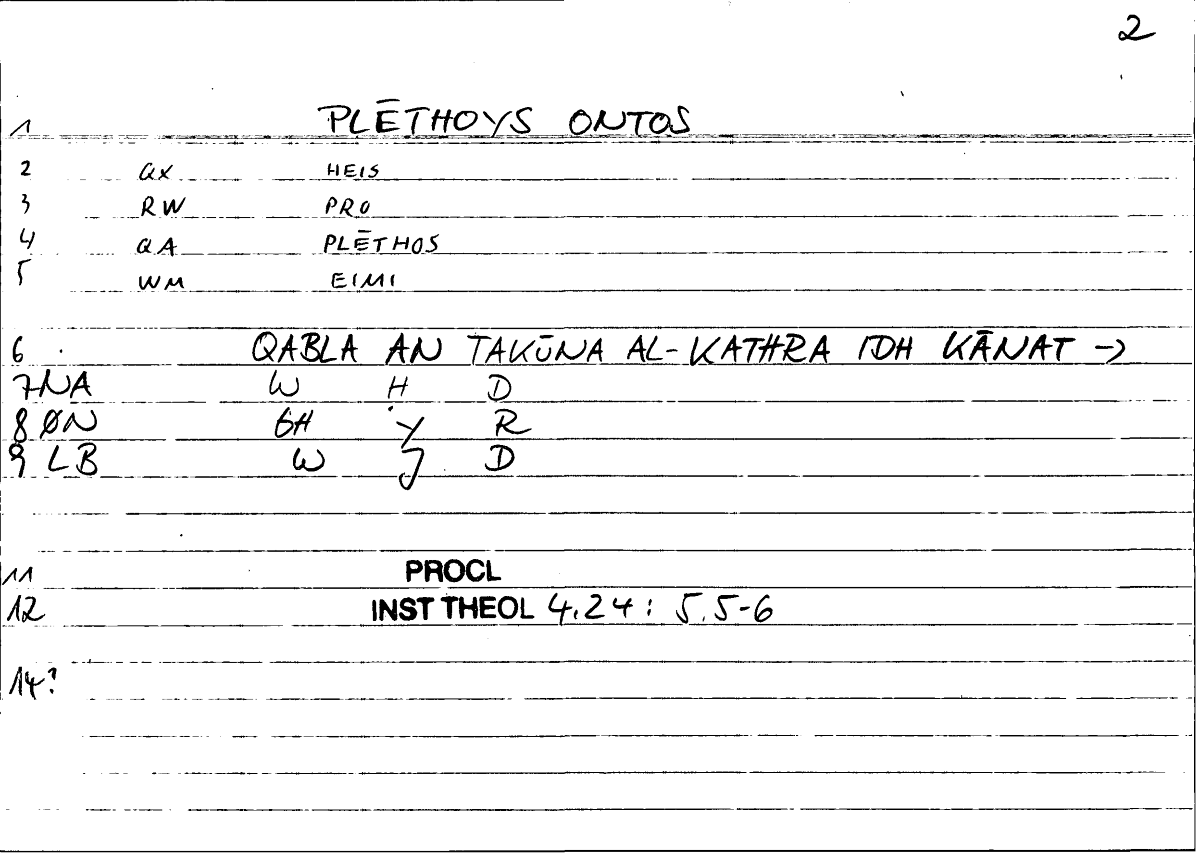 2
1 PLĒTHOYS ONTOS
2 QX HEIS
3 RW PRO
4 QA PLĒTHOS
5 WM EIMI
6 QABLA AN TAKŪNA AL-KATHRA IDH KĀNAT →
7 NA W Ḥ D
8 ØN GH Y R
9 LB W J D
11 PROCL
12 INST THEOL 4.24: 5.5-6
14?